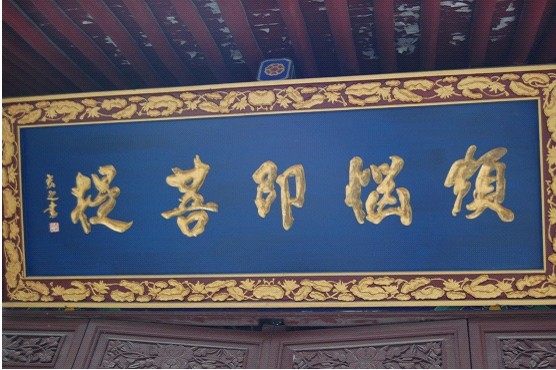 煩惱即菩提